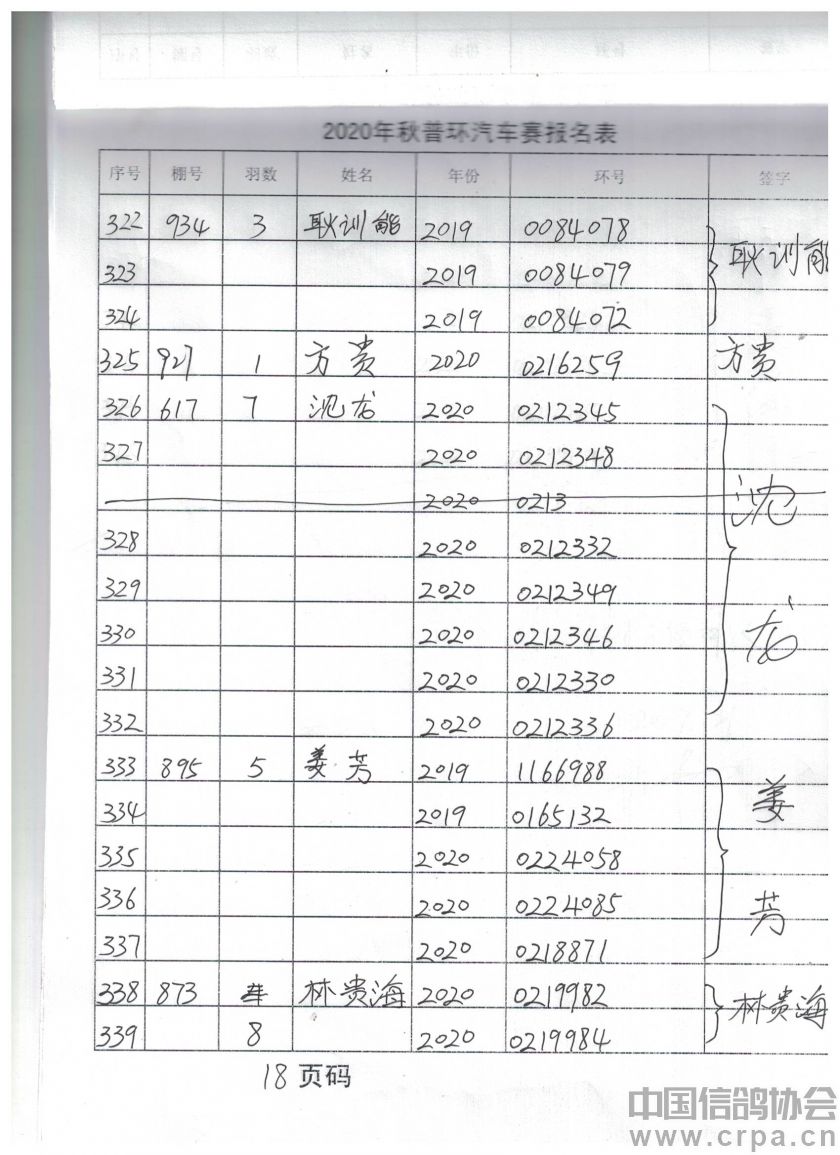 2020年秋普环汽车赛报名表
序号 棚号 羽数 姓名 年份 环号 签字
322 934 3 耿训能 2019 0084078
323 2019 0084079 耿训能
324 2019 0084072
325 927 1 方贵 2020 0216259 方贵
326 617 7 沈龙 2020 0212345
327 2020 0212348
2020 0213 沈
328 2020 0212332
329 2020 0212349
330 2020 0212346 龙
331 2020 0212330
332 2020 0212336
333 895 5 姜芳 2019 1166988
334 2019 0165132 姜
335 2020 0224058
336 2020 0224085 芳
337 2020 0218871
338 873 林贵海 2020 0219982 林贵海
339 8 2020 0219984
18页码
中国信鸽协会
www.crpa.cn